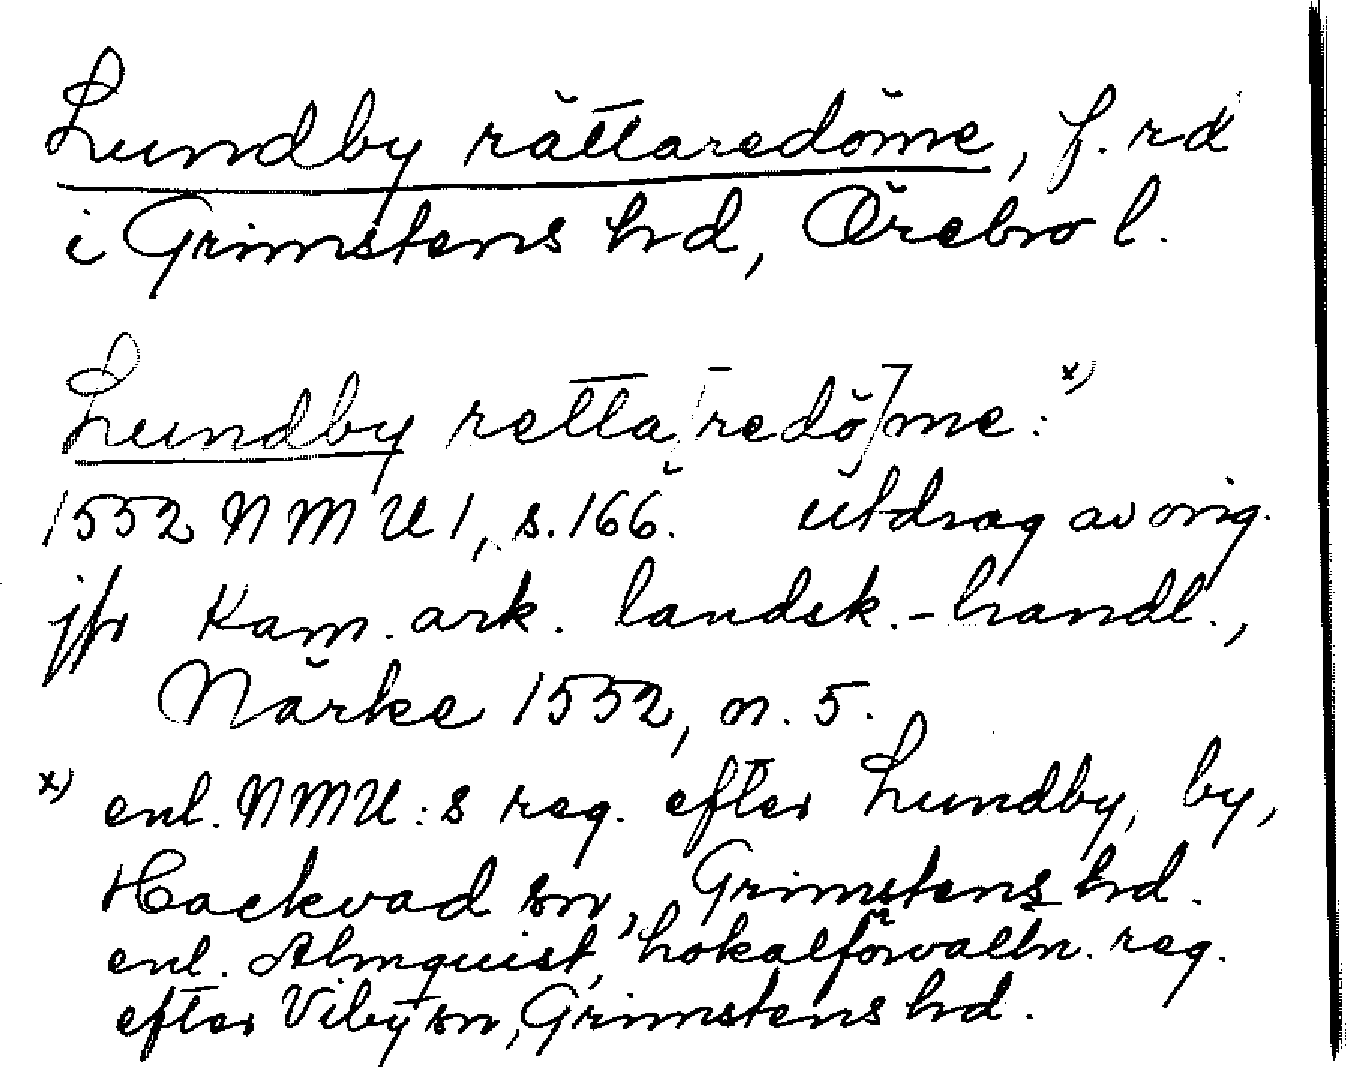 Lundby rättaredöme, f. rd
i Grimstens hrd, Örebro l.
Lundby retta[redö]me: x)
1552 NMU 1, s. 166. utdrag av orig.
jfr Kam. ark. landsk.-handl.,
Närke 1552, n. 5.
x) enl. NMU:s reg. efter Lundby, by,
Hackvad sn, Grimstens hrd.
enl. Almquist, Lokalförvaltn. reg.
efter Viby sn, Grimstens hrd.